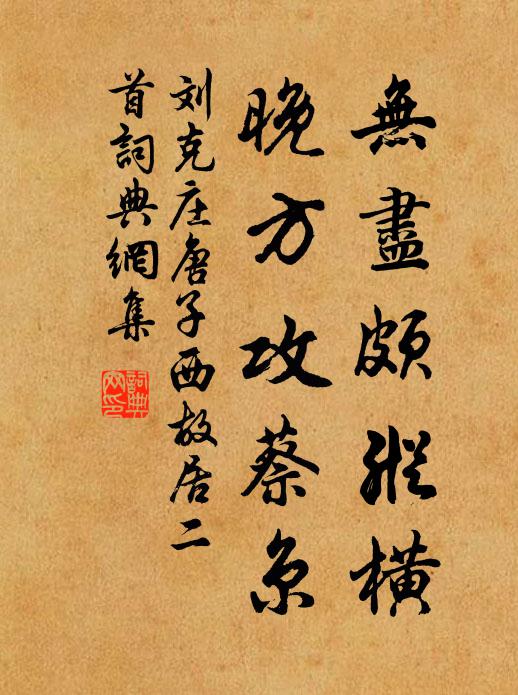 無盡頗縱橫
晚方攻蔡京
刘克庄唐子西故居二
首詞典網集
詞典
網印